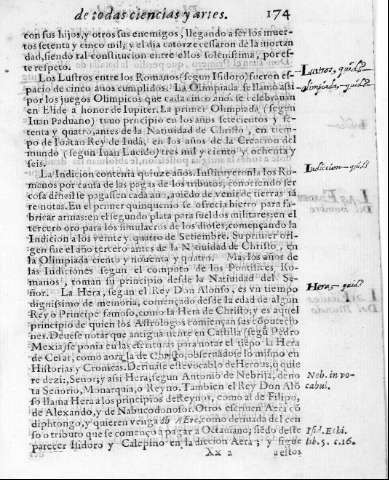 de todas ciencias y artes. 174
con sus hijos, y otros sus enemigos, llegando a ser los muer-
tos setenta y cinco mil, y el dia catorze cessaron de la mortan
dad, siendo tal constitucion entre ellos solenissima, por es-
te respeto.
Los Lustros entre los Romanos (segun Isidoro) fueron es-
pacio de cinco años cumplidos. La Olimpiada se llamò assi
por los juegos Olimpicos que cada cinco años se celebrauan
en Elide a honor de Iupiter. La primer Olimpiada (segun
Iuan Paduano) tuuo principio en los años setecientos y se-
tenta y quatro, antes de la Natiuidad de Christo, en tiem-
po de Ioatan Rey de Iudà, en los años de la Creacion del
mundo (segun Iuan Lucido) tres mil y ciento y ochenta y
seis.
La Indicion contenia quinze años. Instituyeronla los Ro-
manos por causa de las pagas de los tributos, conociendo ser
cosa dificil le pagassen cada año, auiendo de venir de tierras tã
remotas. En el primer quinquenio se ofrecia hierro para
fabricar armas: en el segundo plata para sueldos militares: en el
tercero oro para los simulacros de los dioses, començando la
Indicion a los veinte y quatro de Setiembre. Su primer ori-
gen fue el año tercero antes de la Natiuidad de Christo, en
la Olimpiada ciento y nouenta y quatro. Mas los años de
las Indiciones segun el computo de los Pontifices Ro-
manos, toman su principio desde la Natiuidad del Se-
ñor. La Hera, segun el Rey Don Alonso, es vn tiempo
dignissimo de memoria, començado desde la edad de algun
Rey o Principe famoso, como la Hera de Christo; y es aquel
principio de quien los Astrologos comiençan sus computacio-
nes. Deuese notar que antiguamente en Castilla (segũ Pedro
Mexia) se ponia en las escrituras por notar el tiẽpo la Hera
de Cesar, como aora la de Christo, obseruandose lo mismo en
Historias y Coronicas. Deriuase este vocablo de Heros, q̃ quie
re dezir, Señor; y assi Hera, segun Antonio de Nebrija, deno
ta Señorio, Monarquia, o Reyno. Tambien el Rey Don Alõ
so llama Hera a los principios de Reynos, como al de Filipo,
de Alexandro, y de Nabucodonosor. Otros escriuen Aera cõ
diphtongo, y quieren venga ab Aere, como deriuada del cen
so o tributo que se començò a pagar a Octauiano; siẽdo deste
parecer Isidoro y Calepino en la diccion Aera; y sigue
Xx 2 aestos
Lustros, quid.
Olimpiada, quid.
Indicion, quid
Hera, quid
Neb. in vo-
cabul.
Isid. Ethi.
lib. 5. c. 16.